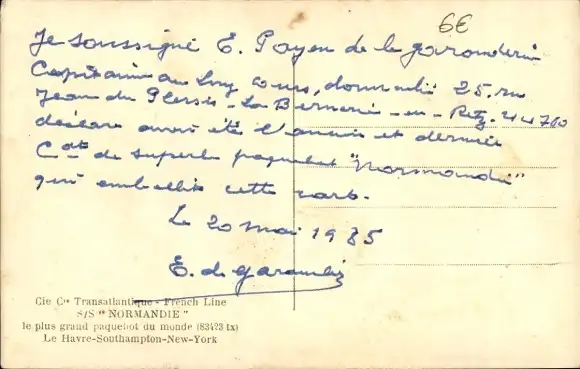 6€
Je soussigné E. Payen de la garanderie
Capitaine au long cours, domicilié 25. rue
Jean du Plessis - La Bernerie - en - Retz. 44760
déclare avoir été l'ancien et dernier
Cdt de superbe paquebot "Normandie"
qui embellit cette carte.
Le 20 mai 1985
E. de garanderie
Cie Gle Transatlantique - French Line
S/S "NORMANDIE"
le plus grand paquebot du monde (83423 tx)
Le Havre-Southampton-New-York